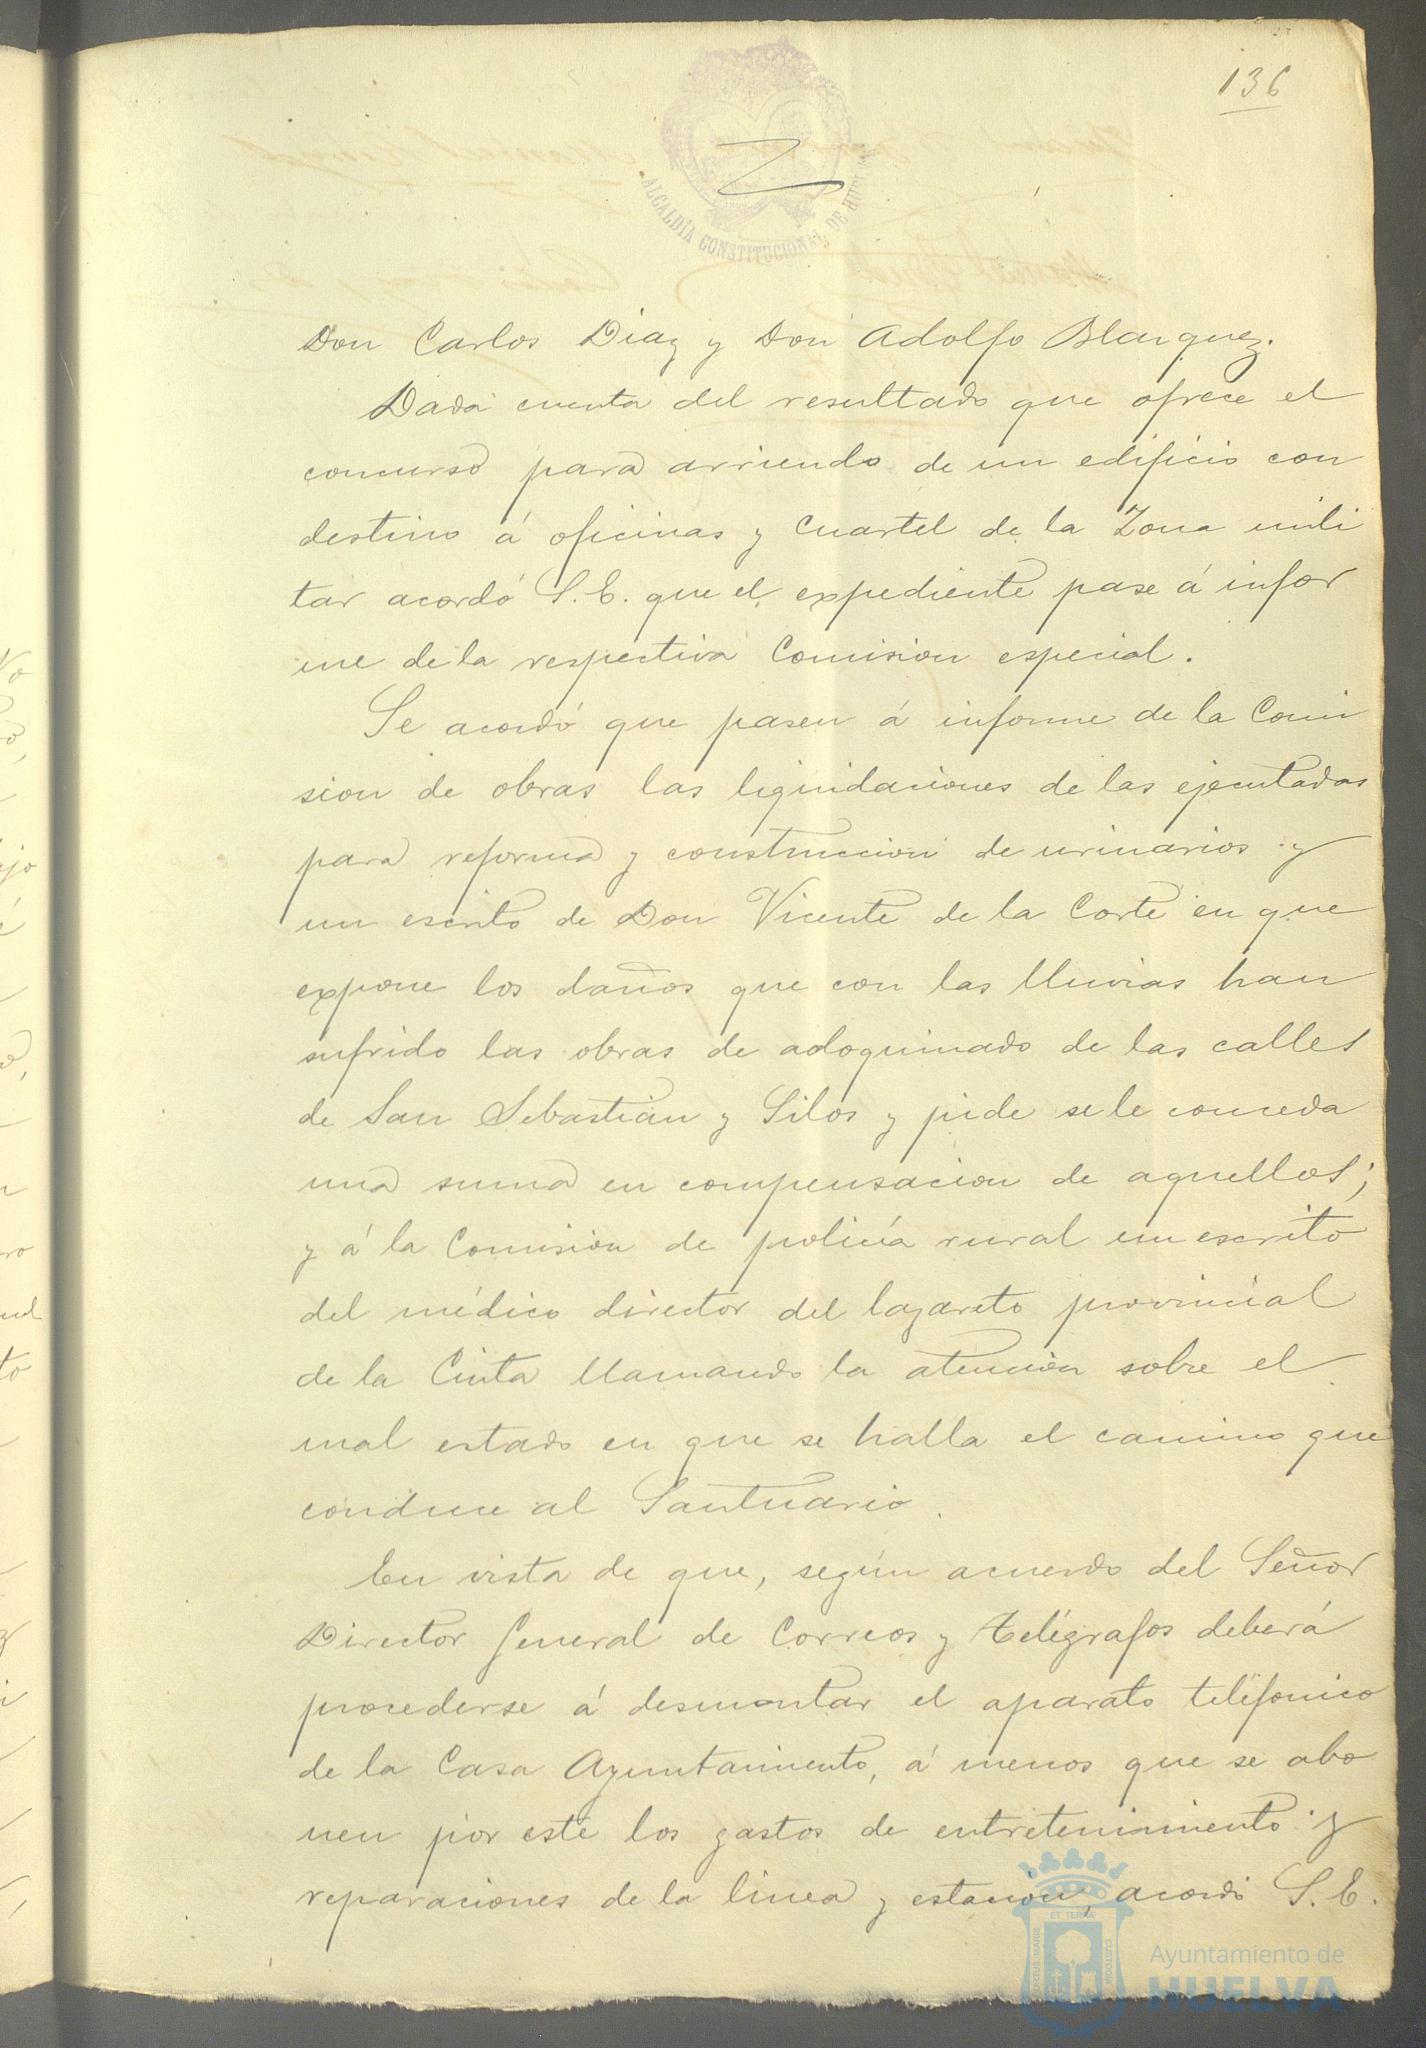 136
ALCALDÍA CONSTITUCIONAL DE HUELVA
Don Carlos Diaz y Don Adolfo Blazquez.
Dada cuenta del resultado que ofrece el
concurso para arriendo de un edificio con
destino á oficinas y cuartel de la Zona mili
tar acordó S.E. que el expediente pase á infor
me de la respectiva Comision especial.
Se acordó que pasen á informe de la Comi
sion de obras las liquidaciones de las ejecutadas
para reforma y construccion de urinarios y
un escrito de Don Vicente de la Corte en que
expone los daños que con las lluvias han
sufrido las obras de adoquinado de las calles
de San Sebastián y Silos y pide se le conceda
una suma en compensacion de aquellos;
y á la Comisión de policía rural un escrito
del médico director del lazareto provincial
de la Cinta llamando la atención sobre el
mal estado en que se halla el camino que
conduce al Santuario.
En vista de que, según acuerdo del Señor
Director General de Correos y Telégrafos deberá
procederse á desmontar el aparato telefonico
de la Casa Ayuntamiento, á menos que se abo
nen por este los gastos de entretenimiento y
reparaciones de la linea y estación, acordó S.E.
Ayuntamiento de
HUELVA